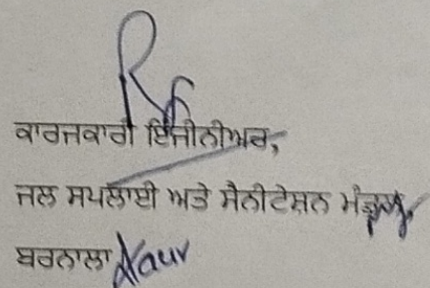 ਕਾਰਜਕਾਰੀ ਇੰਜੀਨੀਅਰ,
ਜਲ ਸਪਲਾਈ ਅਤੇ ਸੈਨੀਟੇਸ਼ਨ ਮੰਡਲ,
ਬਰਨਾਲਾ Kaur